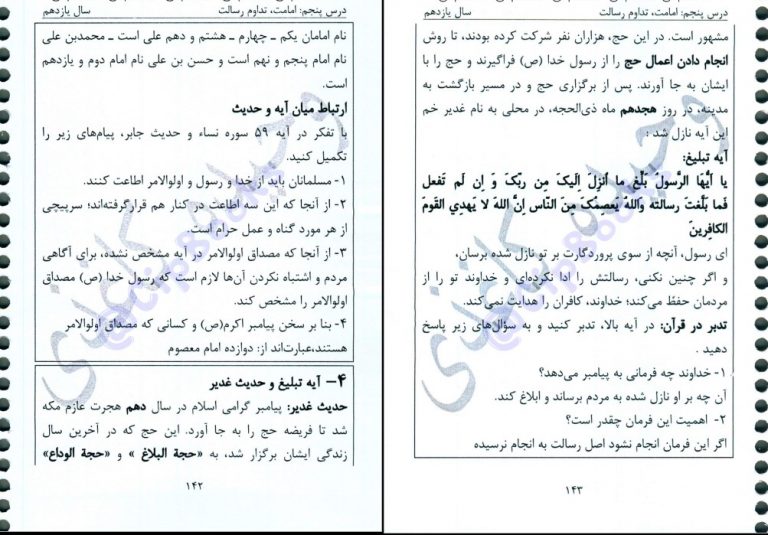 درس پنجم: امامت، تداوم رسالت سال یازدهم
نام امامان یکم ـ چهارم ـ هشتم و دهم علی است ـ محمدبن علی
نام امام پنجم و نهم است و حسن بن علی نام امام دوم و یازدهم
است.
ارتباط میان آیه و حدیث
با تفکر در آیه ۵۹ سوره نساء و حدیث جابر، پیام‌های زیر را
تکمیل کنید.
۱- مسلمانان باید از خدا و رسول و اولوالامر اطاعت کنند.
۲- از آنجا که این سه اطاعت در کنار هم قرارگرفته‌اند؛ سرپیچی
از هر مورد گناه و عمل حرام است.
۳- از آنجا که مصداق اولوالامر در آیه مشخص نشده، برای آگاهی
مردم و اشتباه نکردن آن‌ها لازم است که رسول خدا (ص) مصداق
اولوالامر را مشخص کند.
۴- بنا بر سخن پیامبر اکرم(ص) و کسانی که مصداق اولوالامر
هستند،عبارت‌اند از: دوازده امام معصوم
۴– آیه تبلیغ و حدیث غدیر
حدیث غدیر: پیامبر گرامی اسلام در سال دهم هجرت عازم مکه
شد تا فریضه حج را به جا آورد. این حج که در آخرین سال
زندگی ایشان برگزار شد، به «حجة البلاغ » و «حجة الوداع»
۱۴۲
درس پنجم: امامت، تداوم رسالت سال یازدهم
مشهور است. در این حج، هزاران نفر شرکت کرده بودند، تا روش
انجام دادن اعمال حج را از رسول خدا (ص) فراگیرند و حج را با
ایشان به جا آورند. پس از برگزاری حج و در مسیر بازگشت به
مدینه، در روز هجدهم ماه ذی‌الحجه، در محلی به نام غدیر خم
این آیه نازل شد :
آیه تبلیغ:
یا أیُّها الرَّسولُ بَلِّغ ما اُنزِلَ اِلَیکَ مِن رَبِّکَ وَ اِن لَم تَفعَل
فَما بَلَّغتَ رِسالَتَه وَاللهُ یَعصِمُکَ مِنَ النّاسِ اِنَّ اللهَ لا یَهدِي القَومَ
الکافِرینَ
ای رسول، آنچه از سوی پروردگارت بر تو نازل شده برسان،
و اگر چنین نکنی، رسالتش را ادا نکرده‌ای و خداوند تو را از
مردمان حفظ می‌کند؛ خداوند، کافران را هدایت نمی‌کند.
تدبر در قرآن: در آیه بالا، تدبر کنید و به سؤال‌های زیر پاسخ
دهید .
۱- خداوند چه فرمانی به پیامبر می‌دهد؟
آن چه بر او نازل شده به مردم برساند و ابلاغ کند.
۲- اهمیت این فرمان چقدر است؟
اگر این فرمان انجام نشود اصل رسالت به انجام نرسیده
۱۴۳